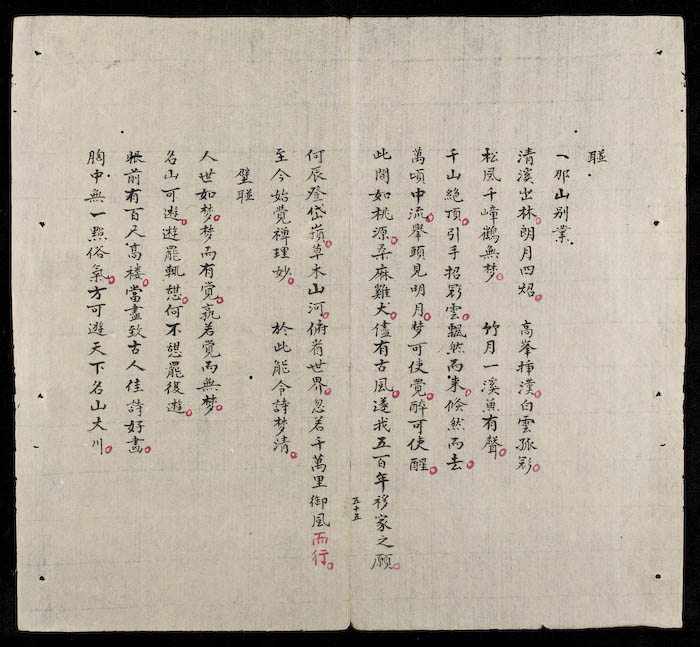 聯
一那山别業
清溪出林。朗月四炤。 高峯挿漢。白雲孤彩。
松風千嶂鶴無梦。 竹月一溪魚有聲。
千山絶頂。引手招彩雲。飄然而来。倐然而去。
萬頃中流。舉頭見明月。梦可使覺。醉可使醒。
此間如桃源。桒麻雞犬。儘有古風。遂我五百年移家之願。
五十五
何辰登岱嶺。草木山河。俯看世界。忽若千萬里御風而行。
至今始覺禅理妙。 於此能令詩梦清。
璧聯
人世如梦。梦而有覚。孰若覚而無梦。
名山可遊。遊罷輒憇。何不憇罷復遊。
眼前有百尺高楼。當盡致古人佳詩好畵。
胸中無一點俗氣。方可遊天下名山大川。